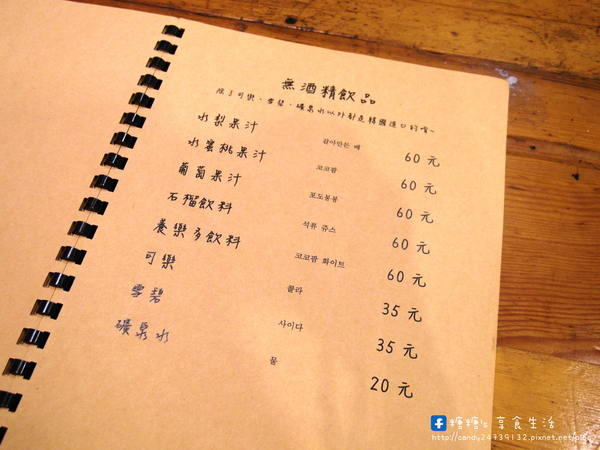 無酒精飲品
除了可樂、雪碧、礦泉水以外都是韓國進口的唷~
水梨果汁 갈아만든 배 60元
水蜜桃果汁 코코팜 60元
葡萄果汁 포도봉봉 60元
石榴飲料 석류 쥬스 60元
養樂多飲料 코코팜 화이트 60元
可樂 콜라 35元
雪碧 사이다 35元
礦泉水 물 20元
糖糖's 享食生活
http://candy24739132.pixnet.net/blog